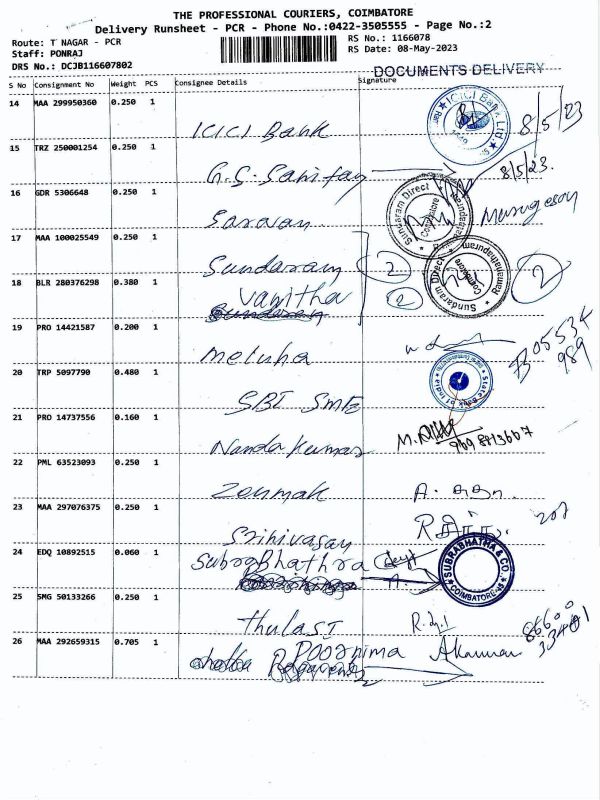 THE PROFESSIONAL COURIERS, COIMBATORE
Delivery Runsheet - PCR - Phone No.:0422-3505555 - Page No.:2
Route: T NAGAR - PCR
RS No.: 1166078
Staff: PONRAJ
RS Date: 08-May-2023
DRS No.: DCJB116607802
DOCUMENTS DELIVERY
S No Consignment No Weight PCS Consignee Details Signature
14 MAA 299950360 0.250 1
ICICI Bank
ICICI Bank Ltd.
8/5/23
15 TRZ 250001254 0.250 1
G.S. Sanitary
8/5/23.
16 GDR 5306648 0.250 1
Saravan
Sundaram Direct
Coimbatore
Murugesan
17 MAA 100025549 0.250 1
Sundaram
2
Sundaram Direct
Coimbatore
Ramanathapuram
2
18 BLR 280376298 0.380 1
Vanitha
2
19 PRO 14421587 0.200 1
Meluha
05534
989
20 TRP 5097790 0.480 1
SBI SME
State Bank of India
21 PRO 14737556 0.160 1
Nanda Kumar
22 PML 63523093 0.250 1
Zenmak
23 MAA 297076375 0.250 1
Srinivasan
24 EDQ 10892515 0.060 1
SubraBhathra
SUBRABHATHA & CO.
COIMBATORE-45
25 SMG 50133266 0.250 1
thulasi
26 MAA 292659315 0.705 1
Poornima